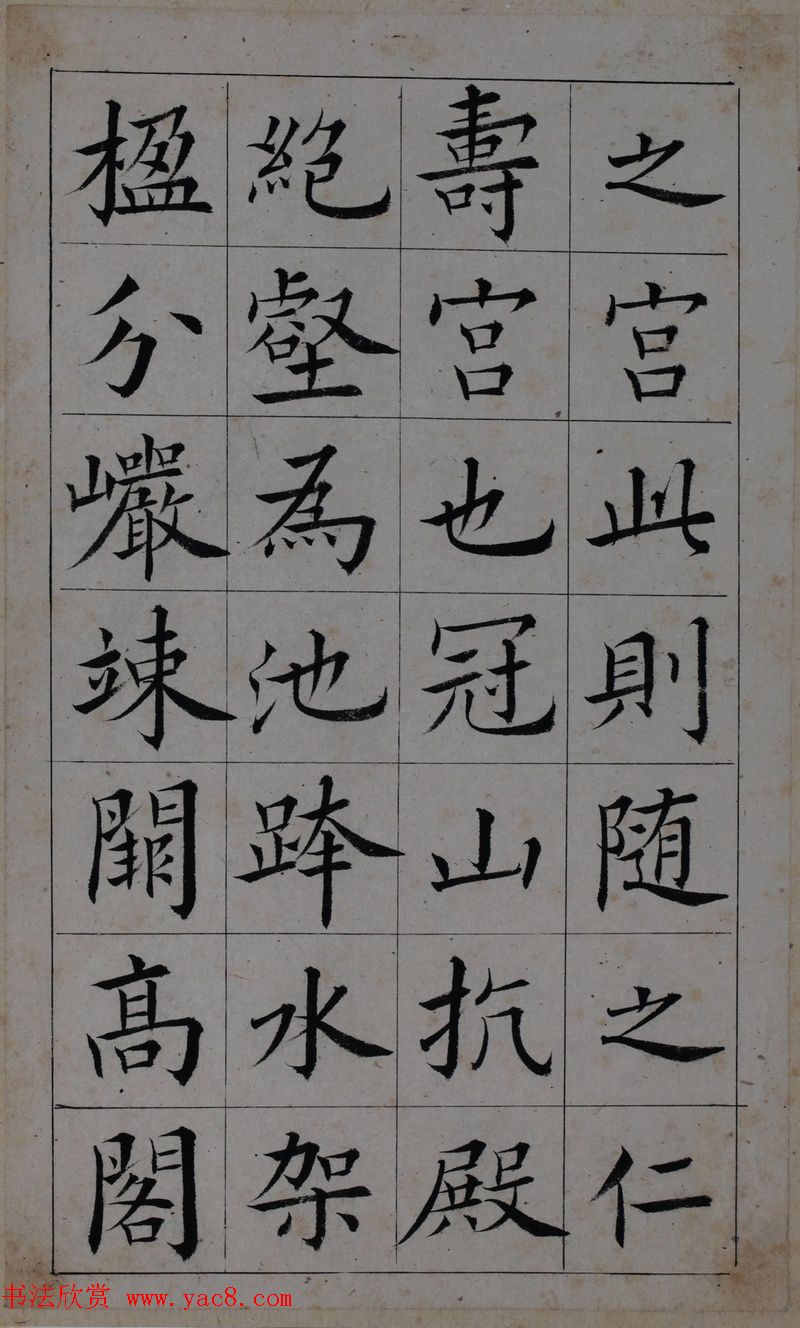 之宮此則随之仁
壽宮也冠山抗殿
絶壑為池跨水架
楹分巖竦闕髙閣
书法欣赏 www.yac8.com